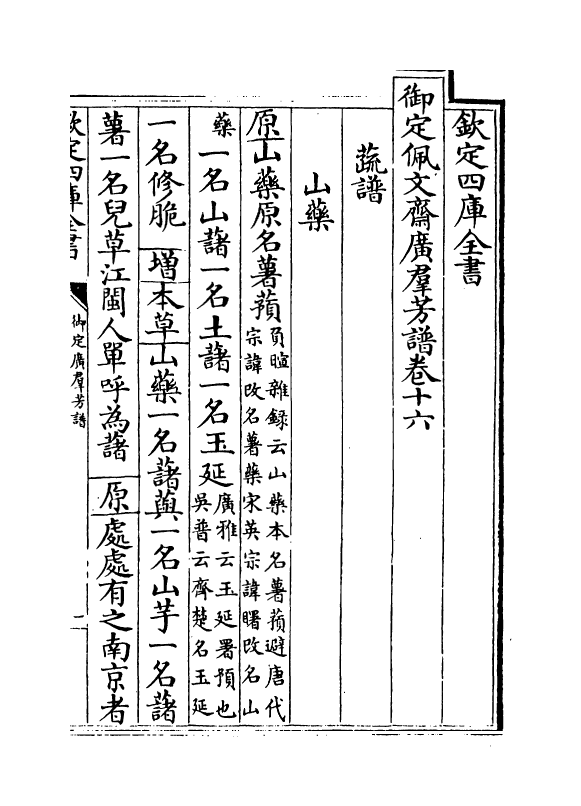 欽定四庫全書
御定佩文齋廣羣芳譜卷十六
蔬譜
山藥
原山藥原名薯蕷負暄雜録云山藥本名薯蕷避唐代宗諱改名薯藥宋英宗諱曙改名山
藥一名山藷一名土藷一名玉延廣雅云玉延署預也吳普云齊楚名玉延
一名修脆 增本草山藥一名藷藇一名山芋一名藷
薯一名兒草江閩人單呼為藷 原處處有之南京者
欽定四庫全書 御定廣羣芳譜 一